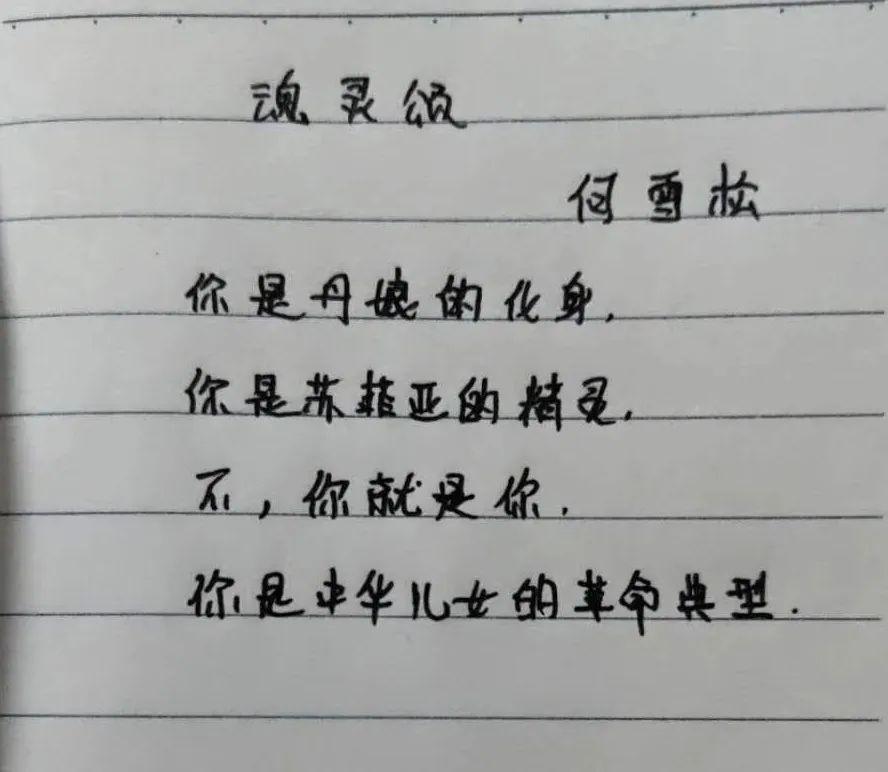 魂灵颂
何雪松
你是丹娘的化身.
你是苏菲亚的精灵.
不,你就是你.
你是中华儿女的革命典型.